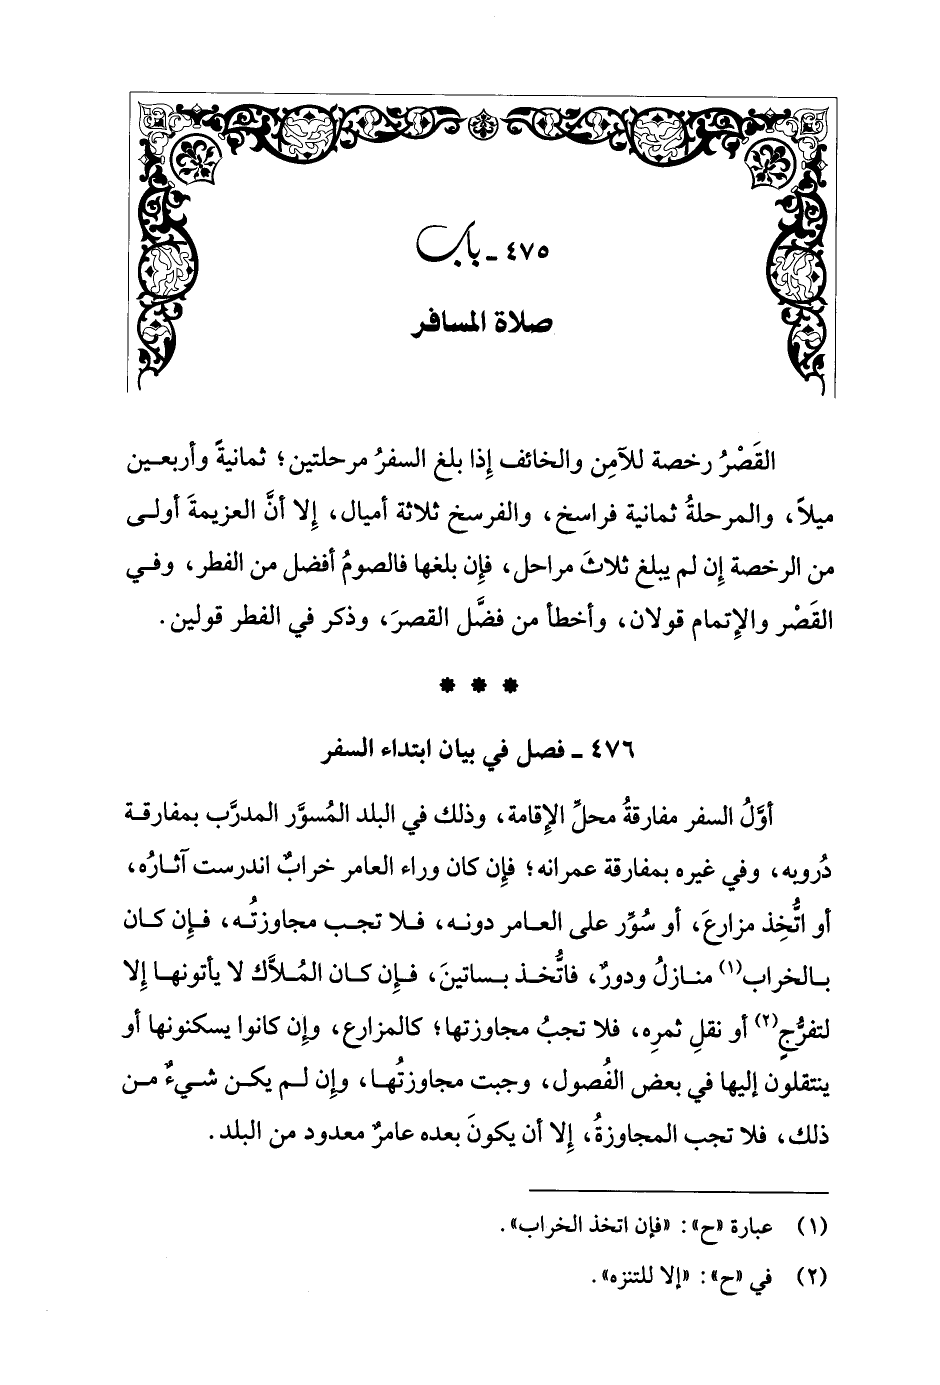 ٤٧٥ ـ باب
صلاة المسافر
القَصْرُ رخصة للآمِن والخائف إِذا بلغ السفرُ مرحلتين؛ ثمانيةً وأربعـين
ميلاً، والمرحلةُ ثمانية فراسخ، والفرسخ ثلاثة أميال، إِلا أنَّ العزيمةَ أولـى
من الرخصة إِن لم يبلغ ثلاثَ مراحل، فإِن بلغها فالصومُ أفضل من الفطر، وفـي
القَصْر والإِتمام قولان، وأخطأ من فضَّل القصرَ، وذكر في الفطر قولين.
* * *
٤٧٦ ـ فصل في بيان ابتداء السفر
أوَّلُ السفر مفارقةُ محلِّ الإِقامة، وذلك في البلد المُسوَّر المدرَّب بمفارقـة
دُروبه، وفي غيره بمفارقة عمرانه؛ فإِن كان وراء العامر خرابٌ اندرست آثـارُه،
أو اتُّخِذ مزارعَ، أو سُوِّر على العـامر دونـه، فـلا تجـب مجاوزتُـه، فـإِن كـان
بـالخراب(١) منـازلُ ودورٌ، فاتُّخـذ بسـاتينَ، فـإِن كـان المُـلاَّك لا يأتونهـا إِلا
لتفرُّجٍ(٢) أو نقلِ ثمرِه، فلا تجبُ مجاوزتها؛ كالمزارع، وإِن كانوا يسكنونها أو
ينتقلون إليها في بعض الفُصول، وجبت مجاوزتُهـا، وإِن لـم يكـن شـيءٌ مـن
ذلك، فلا تجب المجاوزةُ، إِلا أن يكونَ بعده عامرٌ معدود من البلد.
(١) عبارة «ح»: «فإن اتخذ الخراب».
(٢) في «ح»: «إلا للتنزه».